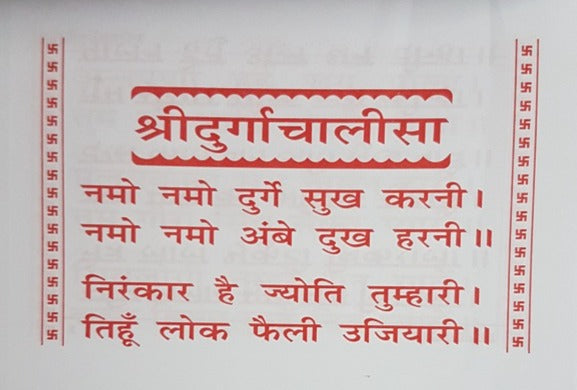 श्रीदुर्गाचालीसा
नमो नमो दुर्गे सुख करनी।
नमो नमो अंबे दुख हरनी॥
निरंकार है ज्योति तुम्हारी।
तिहूँ लोक फैली उजियारी॥